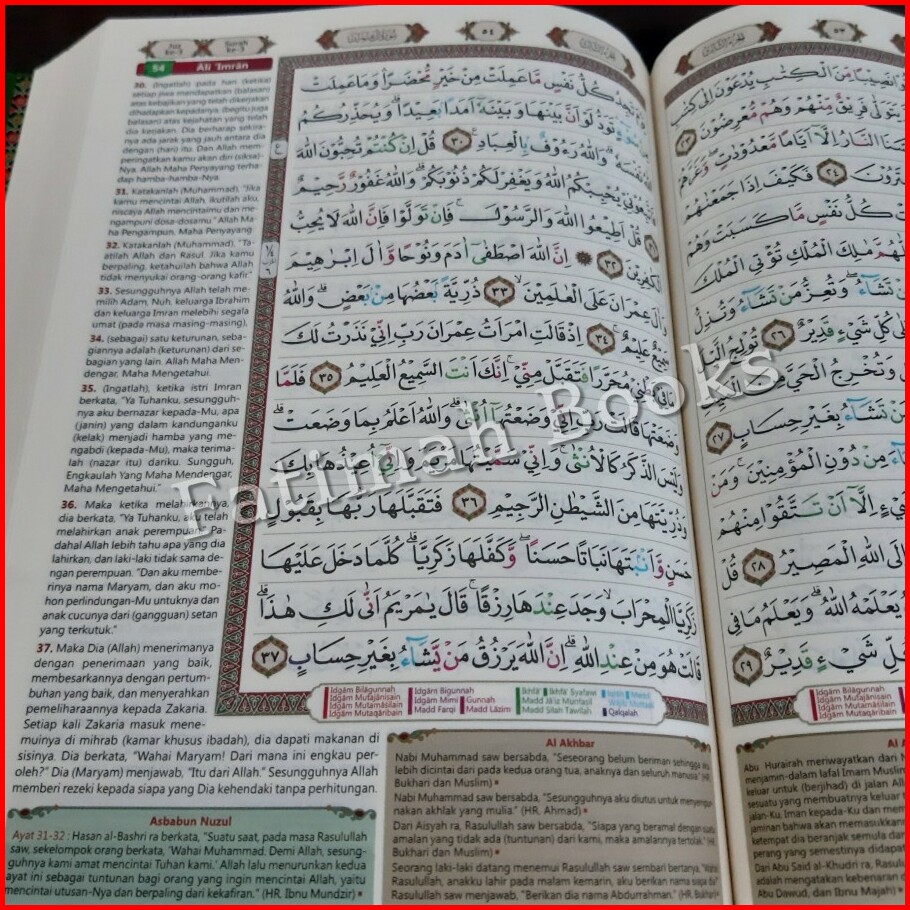 Juz
ke-3
Surah
ke-3
٥٤
٥٣
54
Ali 'Imrān
30. (Ingatlah) pada hari (ketika)
setiap jiwa mendapatkan (balasan)
atas kebajikan yang telah dikerjakan
dihadapkan kepadanya, (begitu juga
balasan) atas kejahatan yang telah
dia kerjakan. Dia berharap sekira-
nya ada jarak yang jauh antara dia
dengan (hari) itu. Dan Allah mem-
peringatkan kamu akan diri (siksa)-
Nya. Allah Maha Penyayang terha-
dap hamba-hamba-Nya.
31. Katakanlah (Muhammad), "Jika
kamu mencintai Allah, ikutilah aku,
niscaya Allah mencintaimu dan me-
ngampuni dosa-dosamu." Allah Ma-
ha Pengampun, Maha Penyayang.
32. Katakanlah (Muhammad), "Ta-
atilah Allah dan Rasul. Jika kamu
berpaling, ketahuilah bahwa Allah
tidak menyukai orang-orang kafir."
33. Sesungguhnya Allah telah me-
milih Adam, Nuh, keluarga Ibrahim
dan keluarga Imran melebihi segala
umat (pada masa masing-masing),
34. (sebagai) satu keturunan, seba-
giannya adalah (keturunan) dari se-
bagian yang lain. Allah Maha Men-
dengar, Maha Mengetahui.
35. (Ingatlah), ketika istri Imran
berkata, "Ya Tuhanku, sesungguh-
nya aku bernazar kepada-Mu, apa
(janin) yang dalam kandunganku
(kelak) menjadi hamba yang me-
ngabdi (kepada-Mu), maka terima-
lah (nazar itu) dariku. Sungguh,
Engkaulah Yang Maha Mendengar,
Maha Mengetahui."
36. Maka ketika melahirkannya,
dia berkata, "Ya Tuhanku, aku telah
melahirkan anak perempuan." Pa-
dahal Allah lebih tahu apa yang dia
lahirkan, dan laki-laki tidak sama de-
ngan perempuan. "Dan aku membe-
rinya nama Maryam, dan aku mo-
hon perlindungan-Mu untuknya dan
anak cucunya dari (gangguan) setan
yang terkutuk."
37. Maka Dia (Allah) menerimanya
dengan penerimaan yang baik,
membesarkannya dengan pertum-
buhan yang baik, dan menyerahkan
pemeliharaannya kepada Zakaria.
Setiap kali Zakaria masuk mene-
muinya di mihrab (kamar khusus ibadah), dia dapati makanan di
sisinya. Dia berkata, "Wahai Maryam! Dari mana ini engkau per-
oleh?" Dia (Maryam) menjawab, "Itu dari Allah." Sesungguhnya Allah
memberi rezeki kepada siapa yang Dia kehendaki tanpa perhitungan.
كُلُّ نَفْسٍ مَّا عَمِلَتْ مِنْ خَيْرٍ مُّحْضَرًا وَمَا عَمِلَتْ
تَوَدُّ لَوْ أَنَّ بَيْنَهَا وَبَيْنَهٗٓ اَمَدًاۢ بَعِيْدًاۗ وَيُحَذِّرُكُمُ
وَاللّٰهُ رَءُوْفٌۢ بِالْعِبَادِ ٣٠ قُلْ اِنْ كُنْتُمْ تُحِبُّوْنَ اللّٰهَ
يُحْبِبْكُمُ اللّٰهُ وَيَغْفِرْ لَكُمْ ذُنُوْبَكُمْۗ وَاللّٰهُ غَفُوْرٌ رَّحِيْمٌ
قُلْ اَطِيْعُوا اللّٰهَ وَالرَّسُوْلَ فَاِنْ تَوَلَّوْا فَاِنَّ اللّٰهَ لَا يُحِبُّ
الْكٰفِرِيْنَ ٣٢ اِنَّ اللّٰهَ اصْطَفٰىٓ اٰدَمَ وَنُوْحًا وَّاٰلَ اِبْرٰهِيْمَ
وَاٰلَ عِمْرَانَ عَلَى الْعٰلَمِيْنَۙ ٣٣ ذُرِّيَّةًۢ بَعْضُهَا مِنْۢ بَعْضٍۗ وَاللّٰهُ
سَمِيْعٌ عَلِيْمٌ ٣٤ اِذْ قَالَتِ امْرَاَتُ عِمْرَانَ رَبِّ اِنِّيْ نَذَرْتُ لَكَ
مَا فِيْ بَطْنِيْ مُحَرَّرًا فَتَقَبَّلْ مِنِّيْۚ اِنَّكَ اَنْتَ السَّمِيْعُ الْعَلِيْمُ ٣٥ فَلَمَّا
وَضَعَتْهَا قَالَتْ رَبِّ اِنِّيْ وَضَعْتُهَآ اُنْثٰىۗ وَاللّٰهُ اَعْلَمُ بِمَا وَضَعَتْۗ
وَلَيْسَ الذَّكَرُ كَالْاُنْثٰىۚ وَاِنِّيْ سَمَّيْتُهَا مَرْيَمَ وَاِنِّيْٓ اُعِيْذُهَا بِكَ
وَذُرِّيَّتَهَا مِنَ الشَّيْطٰنِ الرَّجِيْمِ ٣٦ فَتَقَبَّلَهَا رَبُّهَا بِقَبُوْلٍ
حَسَنٍ وَّاَنْۢبَتَهَا نَبَاتًا حَسَنًاۖ وَّكَفَّلَهَا زَكَرِيَّاۗ كُلَّمَا دَخَلَ عَلَيْهَا
زَكَرِيَّا الْمِحْرَابَۙ وَجَدَ عِنْدَهَا رِزْقًاۚ قَالَ يٰمَرْيَمُ اَنّٰى لَكِ هٰذَاۗ
قَالَتْ هُوَ مِنْ عِنْدِ اللّٰهِۗ اِنَّ اللّٰهَ يَرْزُقُ مَنْ يَّشَاۤءُ بِغَيْرِ حِسَابٍ ٣٧
Idgām Bilāgunnah
Idgām Mutajānisain
Idgām Mutamāsilain
Idgām Mutaqāribain
Idgām Bigunnah
Idgām Mimi
Gunnah
Madd Farqi
Madd Lāzim
Ikhfā'
Ikhfā' Syafawi
Madd Jā'iz Munfasil
Madd Silah Tawilah
Qalqalah
Asbabun Nuzul
Ayat 31-32 : Hasan al-Bashri ra berkata, "Suatu saat, pada masa Rasulullah
saw, sekelompok orang berkata, 'Wahai Muhammad. Demi Allah, sesung-
guhnya kami amat mencintai Tuhan kami.' Allah lalu menurunkan kedua
ayat ini sebagai tuntunan bagi orang yang ingin mencintai Allah, yaitu
mencintai utusan-Nya dan berpaling dari kekafiran." (HR. Ibnu Mundzir)
Al Akhbar
Nabi Muhammad saw bersabda, "Seseorang belum beriman sehingga aku
lebih dicintai dari pada kedua orang tua, anaknya dan seluruh manusia." (HR.
Bukhari dan Muslim)
Nabi Muhammad saw bersabda, "Sesungguhnya aku diutus untuk menyempur-
nakan akhlak yang mulia." (HR. Ahmad)
Dari Aisyah ra, Rasulullah saw bersabda, "Siapa yang beramal dengan suatu
amalan yang tidak ada (tuntunan) dari kami, maka amalannya tertolak." (HR.
Bukhari dan Muslim)
Seorang laki-laki datang menemui Rasulullah saw sembari bertanya, "Wahai
Rasulullah, anakku lahir pada malam kemarin, aku beri nama siapa dia?"
Rasulullah saw menjawab, "Berikan dia nama Abdurrahman." (HR. Bukhari
يَتَوَلّٰى فَرِيْقٌ مِّنْهُمْ وَهُمْ مُّعْرِضُوْنَ ٢٣
النَّارُ اِلَّآ اَيَّامًا مَّعْدُوْدٰتٍۖ وَّغَرَّهُمْ
٢٤ فَكَيْفَ اِذَا جَمَعْنٰهُمْ
كُلُّ نَفْسٍ مَّا كَسَبَتْ وَهُمْ
مٰلِكَ الْمُلْكِ تُؤْتِى الْمُلْكَ
تَشَاۤءُۖ وَتُعِزُّ مَنْ تَشَاۤءُ وَتُذِلُّ
كُلِّ شَيْءٍ قَدِيْرٌ ٢٦ تُوْلِجُ الَّيْلَ
وَتُخْرِجُ الْحَيَّ
تَشَاۤءُ بِغَيْرِ حِسَابٍ
٢٧
مِنْ دُوْنِ الْمُؤْمِنِيْنَۚ وَمَنْ
اِلَّآ اَنْ تَتَّقُوْا مِنْهُمْ
اللّٰهِ الْمَصِيْرُ ٢٨ قُلْ
يَعْلَمْهُ اللّٰهُۗ وَيَعْلَمُ مَا فِى
كُلِّ شَيْءٍ قَدِيْرٌ ٢٩
Idgām Bilāgunnah
Idgām Mutajānisain
Idgām Mutamāsilain
Idgām Mutaqāribain
Abu Hurairah meriwayatkan dari
menjamin-dalam lafal Imam Muslim
keluar untuk (berjihad) di jalan Allah
sesuatu yang membuatnya keluar
jalan-Ku, Iman kepada-Ku dan mem
jaminan bahwa akan memasukkan
ketempat dia beranjak semula dari
perang yang semestinya didapat
Dari Abu Said al-Khudri ra, Rasulullah
adalah mengatakan kebenaran di
Abu Dawud, dan Ibnu Majah)
Fatimah Books